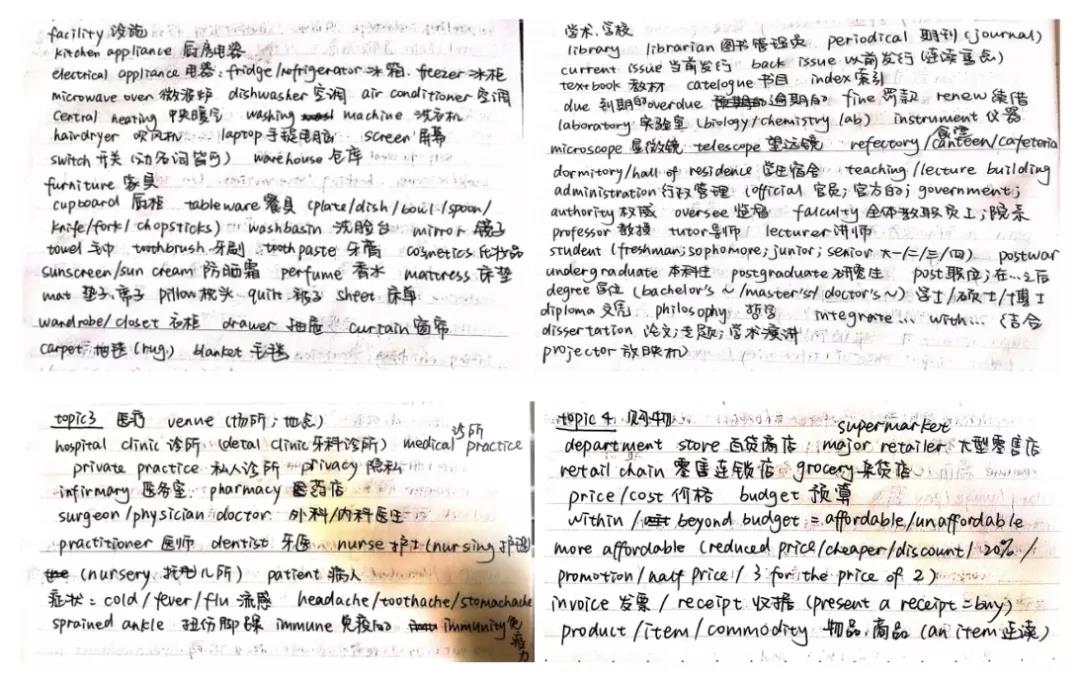 facility 设施
kitchen appliance 厨房电器
electrical appliance 电器: fridge/refrigerator 冰箱 freezer 冰柜
microwave oven 微波炉 dishwasher 空调 air conditioner 空调
central heating 中央暖气 washing machine 洗衣机
hairdryer 吹风机 laptop 手提电脑 screen 屏幕
switch 开关 (动名词皆可) warehouse 仓库
furniture 家具
cupboard 厨柜 tableware 餐具 (plate/dish/bowl/spoon/
knife/fork/chopsticks) washbasin 洗脸台 mirror 镜子
towel 毛巾 toothbrush 牙刷 toothpaste 牙膏 cosmetics 化妆品
sunscreen/sun cream 防晒霜 perfume 香水 mattress 床垫
mat 垫子,席子 pillow 枕头 quilt 被子 sheet 床单
wardrobe/closet 衣柜 drawer 抽屉 curtain 窗帘
carpet 地毯 (rug) blanket 毛毯
学术,学校
library librarian 图书管理员 periodical 期刊 (journal)
current issue 当前发行 back issue 以前发行 (连读重点)
textbook 教材 catelogue 书目 index 索引
due 到期的 overdue 逾期的 fine 罚款 renew 续借
laboratory 实验室 (biology/chemistry lab) instrument 仪器
microscope 显微镜 telescope 望远镜 refectory/canteen/cafeteria 食堂
dormitory/hall of residence 学生宿舍 teaching/lecture building
administration 行政管理 (official 官员; 官方的; government;
authority 权威 oversee 监督 falculty 全体教职员工; 院系
professor 教授 tutor 导师 lecturer 讲师
student (freshman; sophomore; junior; senior 大一/二/三/四) postwar
undergraduate 本科生 postgraduate 研究生 post 职位; 在...之后
degree 学位 (bachelor's ~/master's/doctor's ~) 学士/硕士/博士
diploma 文凭 philosophy 哲学 integrate ... with ... 结合
dissertation 论文; 专题; 学术演讲
projector 放映机
topic3 医疗 venue (场所; 地点)
hospital clinic 诊所 (detal clinic 牙科诊所) medical practice 诊所
private practice 私人诊所 privacy 隐私
infirmary 医务室 pharmacy 医药店
surgeon/physician doctor 外科/内科医生
practitioner 医师 dentist 牙医 nurse 护士 (nursing 护理)
(nursery 托儿所) patient 病人
症状: cold/fever/flu 流感 headache/toothache/stomachache
sprained ankle 扭伤脚踝 immune 免疫的 immunity 免疫力
topic 4 购物
department store 百货商店 supermarket major retailer 大型零售店
retail chain 零售连锁店 grocery 杂货店
price/cost 价格 budget 预算
within / beyond budget = affordable/unaffordable
more affordable (reduced price/cheaper/discount/20%/
promotion/half price/3 for the price of 2)
invoice 发票 / receipt 收据 (present a receipt = buy)
product/item/commodity 物品,商品 (an item 连读)